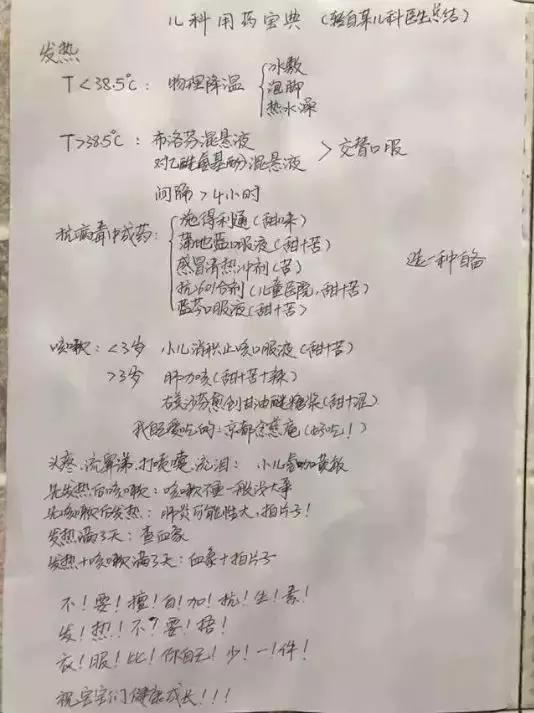 儿科用药宝典 (轻自某儿科医生总结)
发热
T<38.5℃: 物理降温 { 冰敷
泡脚
热水澡
T>38.5℃: 布洛芬混悬液
对乙酰氨基酚混悬液 > 交替口服
间隔>4小时
抗病毒中成药: { 施得利通(甜味)
蒲地蓝口服液(甜+苦)
感冒清热冲剂(苦) 选一种自备
抗601合剂(儿童医院,甜+苦)
蓝芩口服液(甜+苦)
咳嗽: <3岁 小儿消积止咳口服液(甜+苦)
>3岁 肺力咳(甜+苦+辣)
右美沙芬愈创甘油醚糖浆(甜+涩)
我的爱吃的: 京都念慈庵(好吃!)
头疼,流鼻涕,打喷嚏,流泪: 小儿氨咖黄敏
先发热后咳嗽: 咳嗽不重一般没大事
先咳嗽后发热: 肺炎可能性大,拍片子!
发热满3天: 查血象
发热+咳嗽满3天: 血象+拍片子
不!要!擅!自!加!抗!生!素!
发!热!不!要!捂!
衣!服!比!你自己!少!一!件!
祝宝宝们健康成长!!!